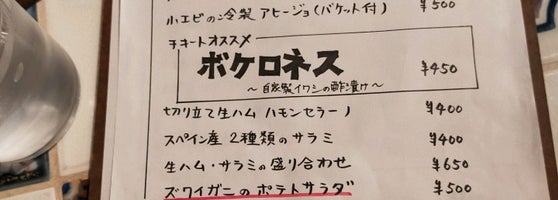 小エビの冷製アヒージョ(バケット付) ¥500
チキートオススメ
ボケロネス ¥450
〜自家製イワシの酢漬け〜
切り立て生ハム ハモンセラーノ ¥400
スペイン産 2種類のサラミ ¥400
生ハム・サラミの盛り合わせ ¥650
ズワイガニのポテトサラダ ¥500